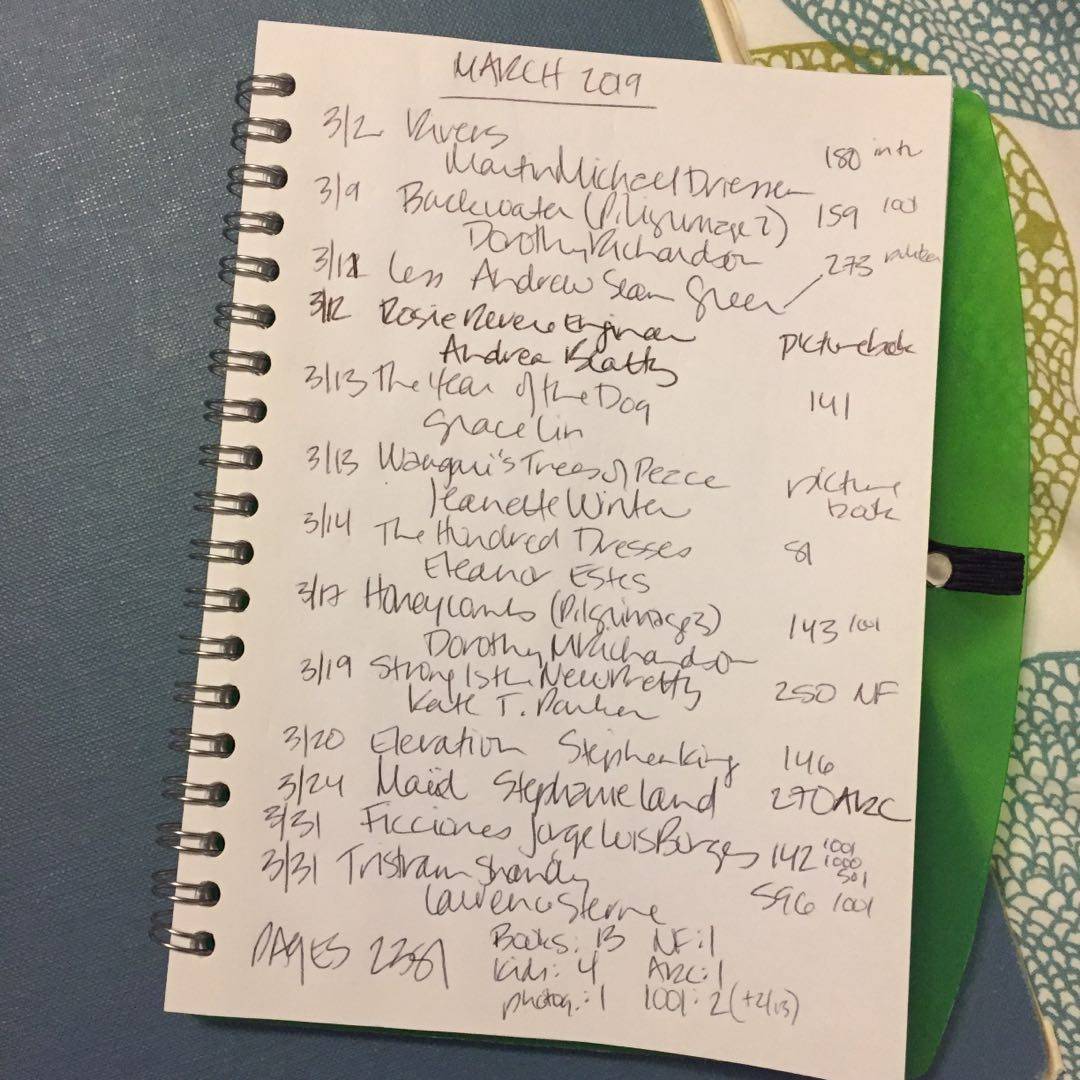 MARCH 2019
3/2 Rivers
Martin Michael Driessen 180 intr
3/9 Backwater (Pilgrimage 2) 159 1001
Dorothy Richardson
3/12 Less Andrew Sean Greer 273
3/12 Rosie Revere Engineer picturebook
Andrea Beatty
3/13 The Year of the Dog 141
Grace Lin
3/13 Wangari's Trees of Peace picture
Jeanette Winter book
3/14 The Hundred Dresses 81
Eleanor Estes
3/17 Honeycomb (Pilgrimage 3) 143 1001
Dorothy M Richardson
3/19 Strong Is the New Pretty 250 NF
Kate T. Parker
3/20 Elevation Stephen King 146
3/24 Maid Stephanie Land 270 ARC
3/31 Ficciones Jorge Luis Borges 142 1001 1000 501
3/31 Tristram Shandy
Laurence Sterne 596 1001
PAGES 2381 Books: 13 NF: 1
Kids: 4 ARC: 1
photog.: 1 1001: 2